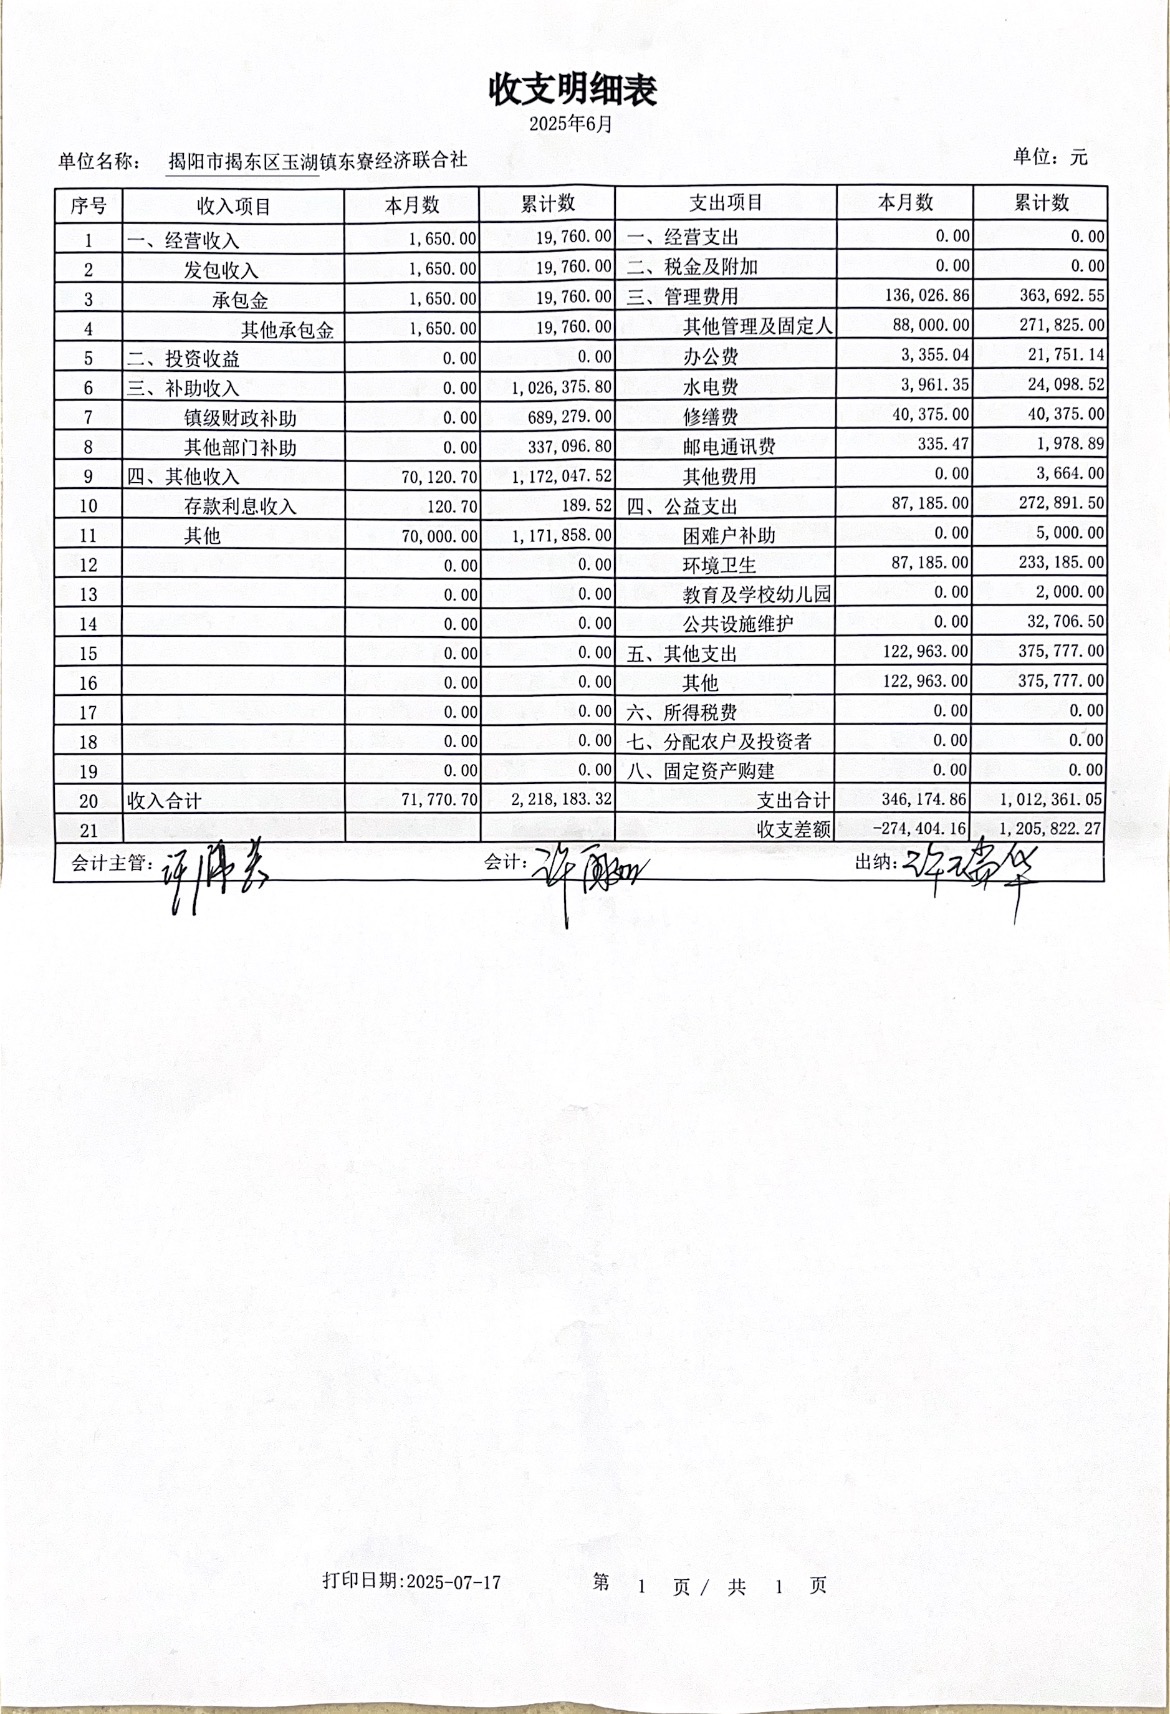 收支明细表
2025年6月
单位名称： 揭阳市揭东区玉湖镇东寮经济联合社 单位：元
序号 收入项目 本月数 累计数 支出项目 本月数 累计数
1 一、经营收入 1,650.00 19,760.00 一、经营支出 0.00 0.00
2 发包收入 1,650.00 19,760.00 二、税金及附加 0.00 0.00
3 承包金 1,650.00 19,760.00 三、管理费用 136,026.86 363,692.55
4 其他承包金 1,650.00 19,760.00 其他管理及固定人 88,000.00 271,825.00
5 二、投资收益 0.00 0.00 办公费 3,355.04 21,751.14
6 三、补助收入 0.00 1,026,375.80 水电费 3,961.35 24,098.52
7 镇级财政补助 0.00 689,279.00 修缮费 40,375.00 40,375.00
8 其他部门补助 0.00 337,096.80 邮电通讯费 335.47 1,978.89
9 四、其他收入 70,120.70 1,172,047.52 其他费用 0.00 3,664.00
10 存款利息收入 120.70 189.52 四、公益支出 87,185.00 272,891.50
11 其他 70,000.00 1,171,858.00 困难户补助 0.00 5,000.00
12 0.00 0.00 环境卫生 87,185.00 233,185.00
13 0.00 0.00 教育及学校幼儿园 0.00 2,000.00
14 0.00 0.00 公共设施维护 0.00 32,706.50
15 0.00 0.00 五、其他支出 122,963.00 375,777.00
16 0.00 0.00 其他 122,963.00 375,777.00
17 0.00 0.00 六、所得税费 0.00 0.00
18 0.00 0.00 七、分配农户及投资者 0.00 0.00
19 0.00 0.00 八、固定资产购建 0.00 0.00
20 收入合计 71,770.70 2,218,183.32 支出合计 346,174.86 1,012,361.05
21 收支差额 -274,404.16 1,205,822.27
会计主管： 会计： 出纳：许瑞华
打印日期:2025-07-17 第 1 页 / 共 1 页